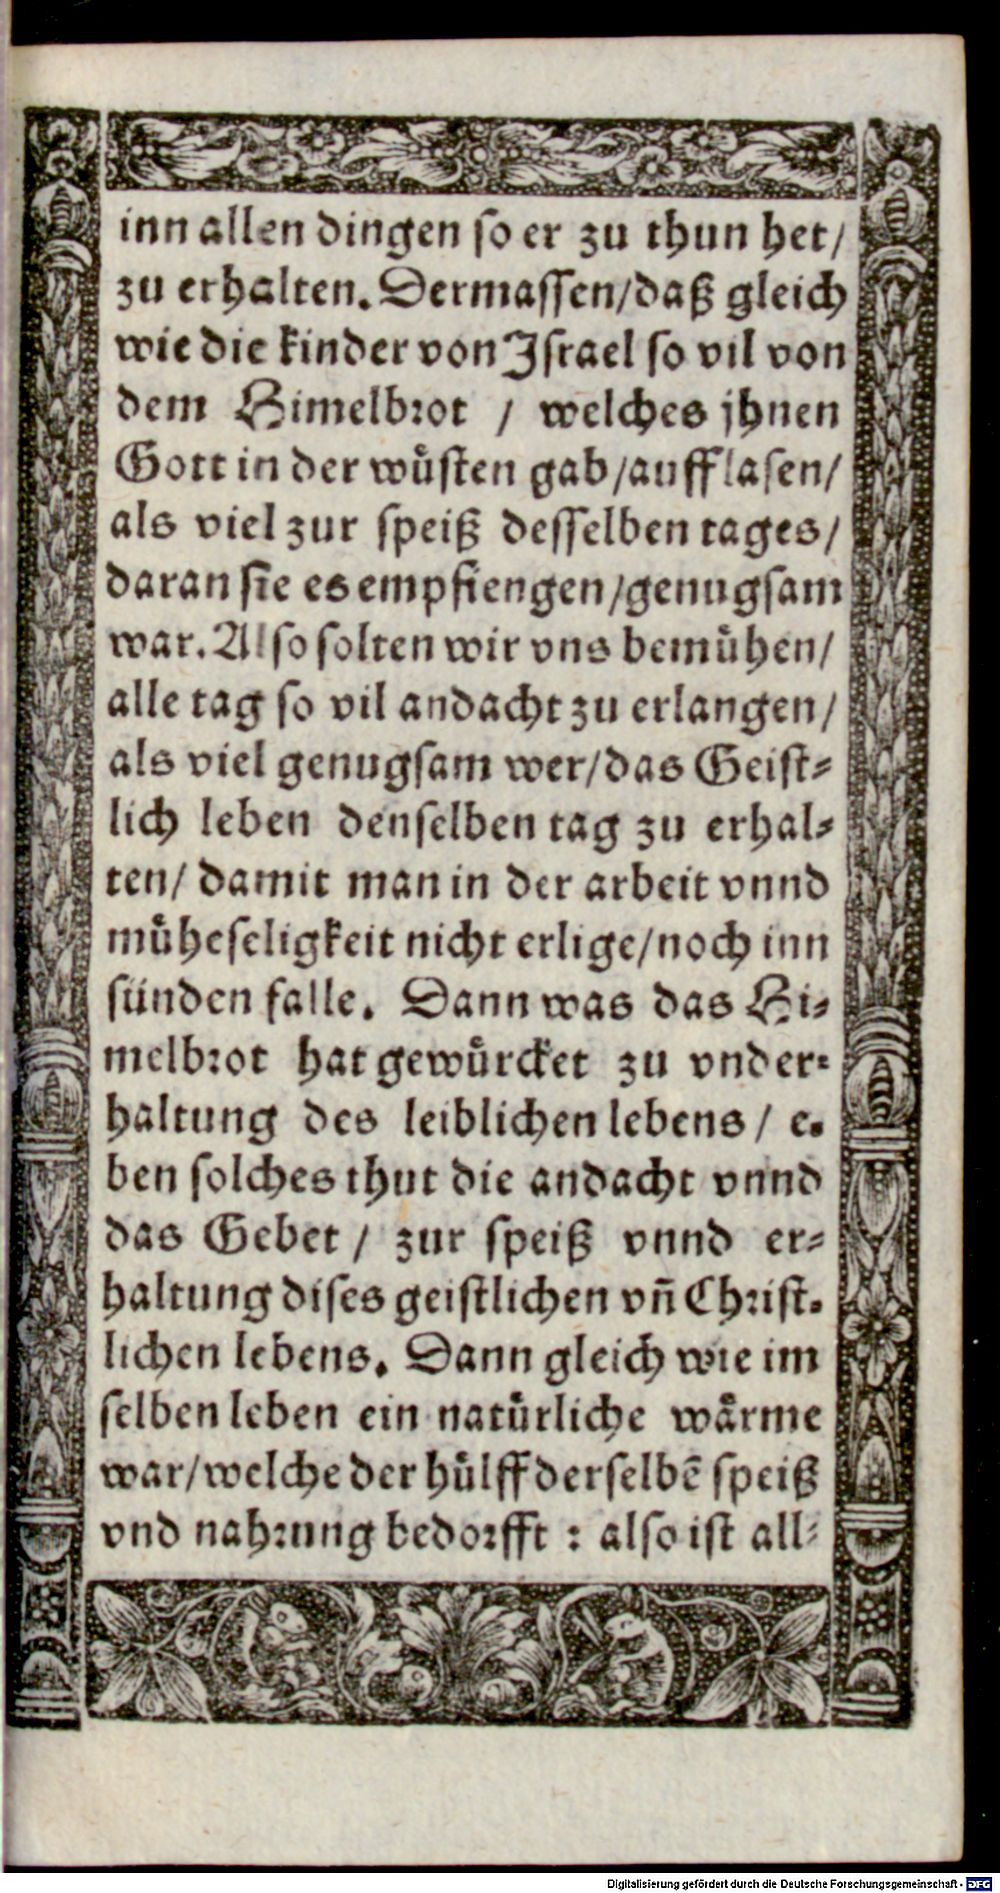 inn allen dingen so er zu thun het/
zu erhalten. Dermassen/daß gleich
wie die kinder von Israel so vil von
dem Himelbrot / welches jhnen
Gott in der wuͤsten gab/aufflasen/
als viel zur speiß desselben tages/
daran sie es empfiengen/genugsam
war. Also solten wir vns bemuͤhen/
alle tag so vil andacht zu erlangen/
als viel genugsam wer/das Geist-
lich leben denselben tag zu erhal-
ten/ damit man in der arbeit vnnd
muͤheseligkeit nicht erlige/noch inn
sünden falle. Dann was das Hi-
melbrot hat gewuͤrcket zu vnder-
haltung des leiblichen lebens / e-
ben solches thut die andacht vnnd
das Gebet / zur speiß vnnd er-
haltung dises geistlichen vn̄ Christ-
lichen lebens. Dann gleich wie im
selben leben ein natuͤrliche waͤrme
war/welche der huͤlff derselbē speiß
vnd nahrung bedorfft : also ist all-
Digitalisierung gefördert durch die Deutsche Forschungsgemeinschaft - DFG